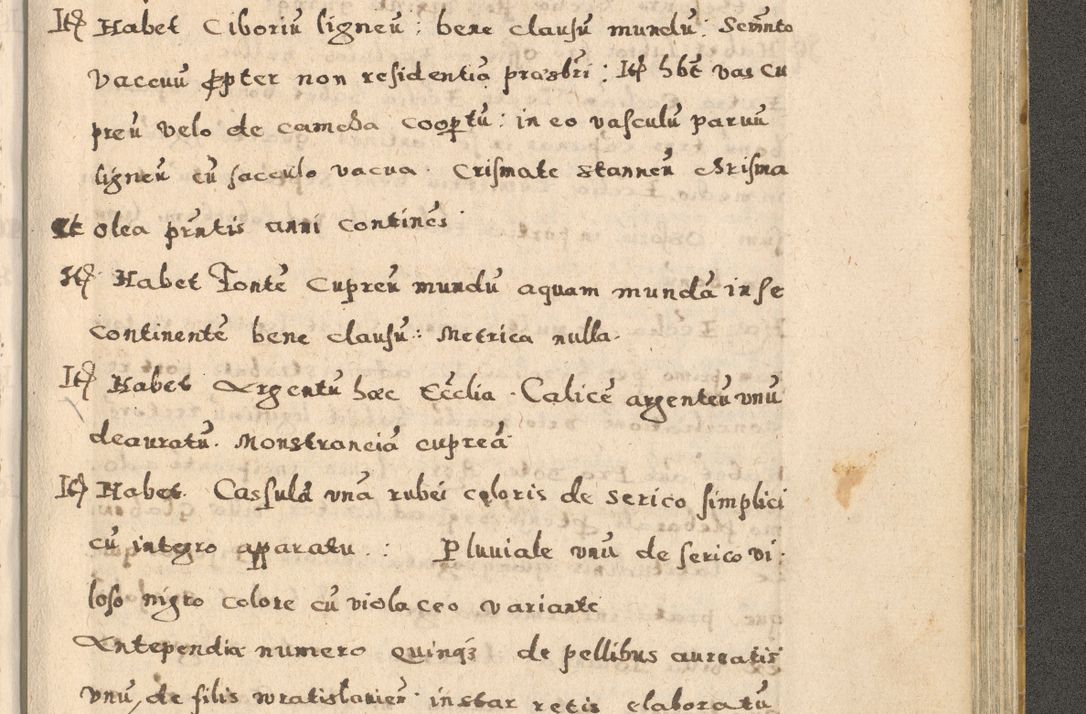 Itē Habet Ciboriū ligneū : bene clausū mundū : Sermēto
vaccuū ꝓpter non residentiā praesbri : Itē hēt vas cu
preū velo de cameha cooptū : in eo vasculū paruū
ligneū cū sacculo vacua . Crismate stanneū chrisma
et olea prn̄tis anni continēs
Itē Habet Fontē Cupreū mundū aquam mundā in se
continentē bene clausū : Metrica nulla .
Itē Habet Argentū hæc Ecclia . Calicē argenteū vnū
deauratū . Monstranciā cupreā
Itē Habet . Cassulā vnā rubei coloris de serico simplici
cū integro apparatu . : Pluuiale vnū de serico vi-
loso nigro colore cū violaceo variante
Antependia numero quinqꝫ de pellibus aureatis
vnū, de filis wratislavien̄ instar retis elaboratū